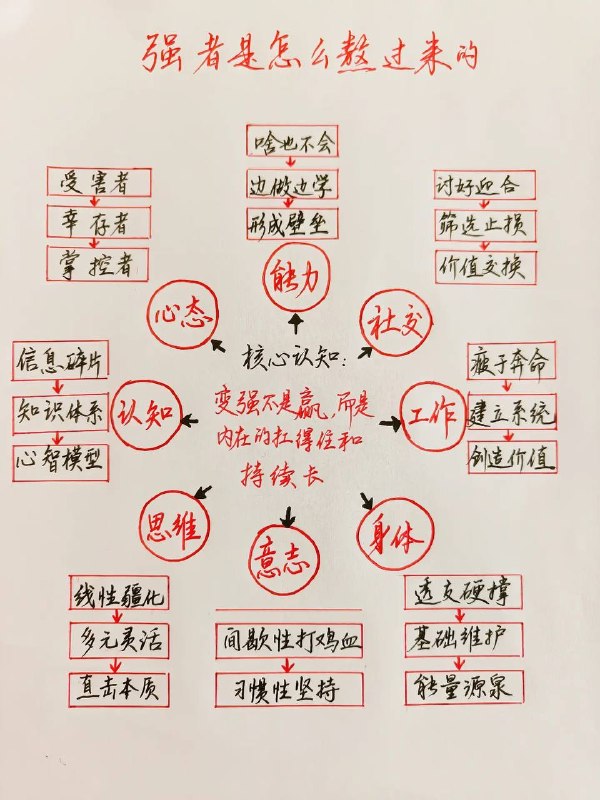 强者是怎么熬过来的
啥也不会
边做边学
形成壁垒
能力
受害者
幸存者
掌控者
心态
讨好迎合
筛选止损
价值交换
社交
信息碎片
知识体系
心智模型
认知
核心认知:
变强不是赢,而是
内在的扛得住和
持续长
疲于奔命
建立系统
创造价值
工作
思维
线性疆化
多元灵活
直击本质
意志
间歇性打鸡血
习惯性坚持
身体
透支硬撑
基础维护
能量源泉